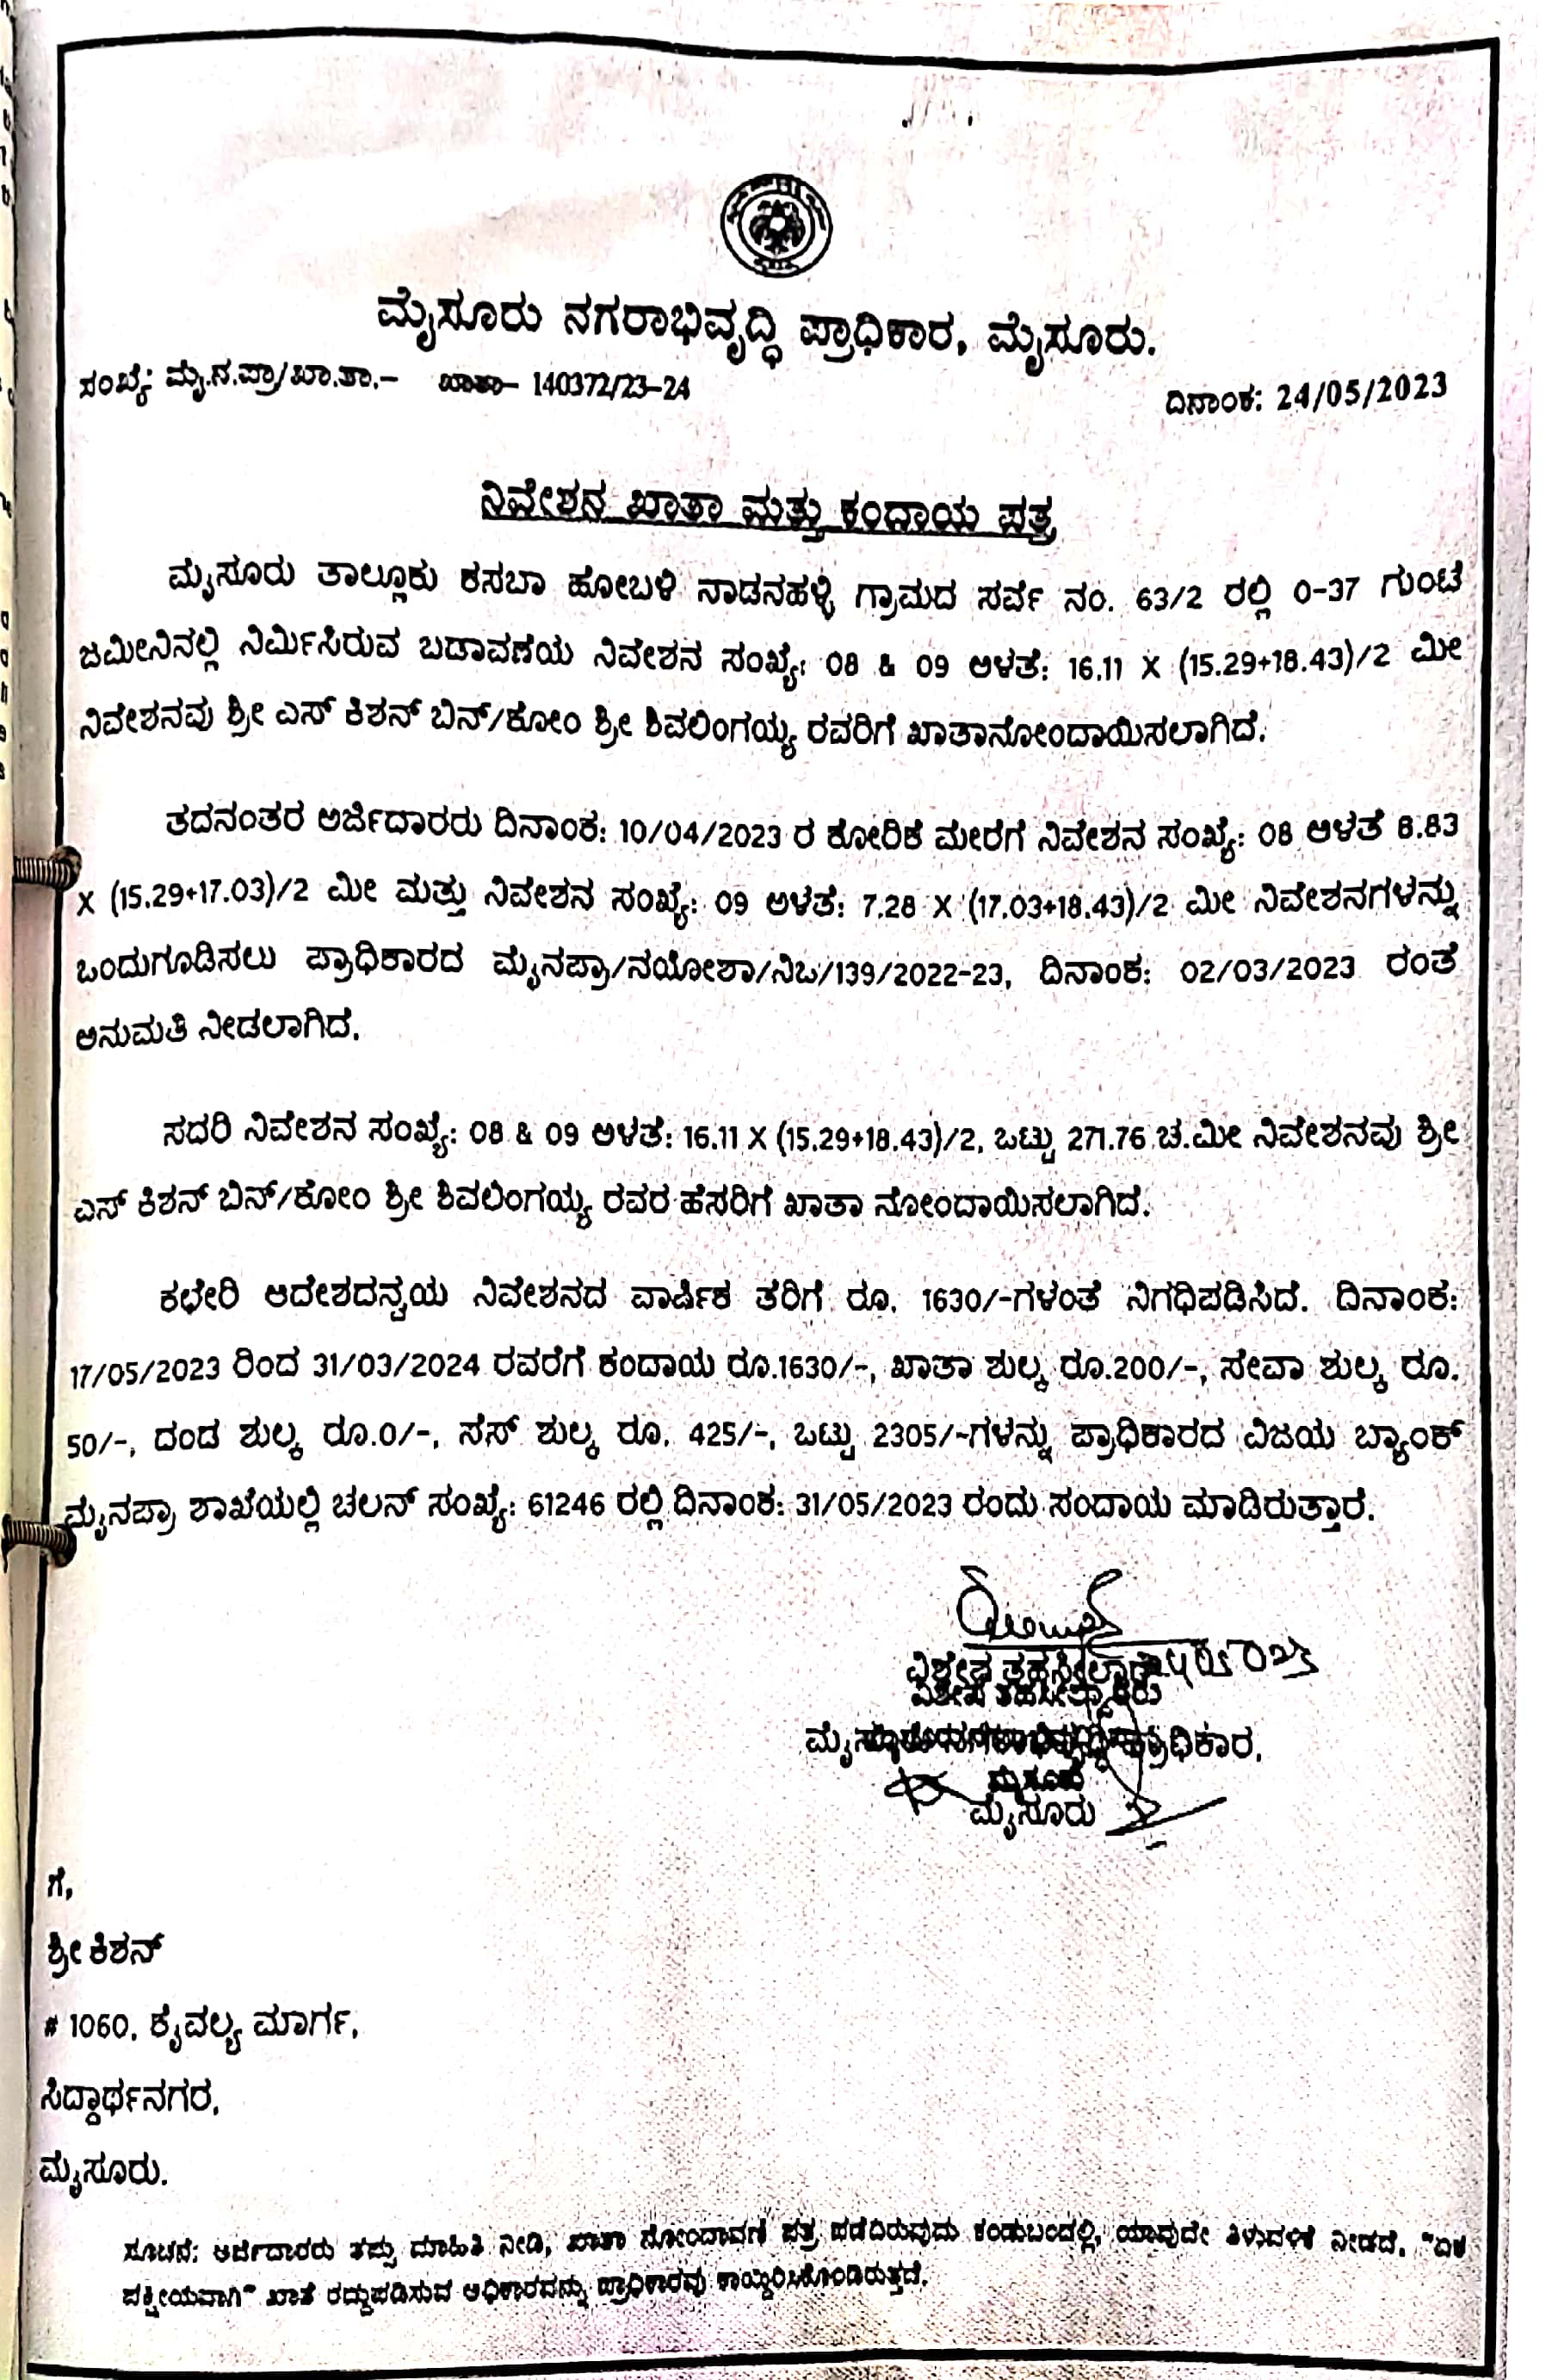 ಮೈಸೂರು ನಗರಾಭಿವೃದ್ಧಿ ಪ್ರಾಧಿಕಾರ, ಮೈಸೂರು.
ಸಂಖ್ಯೆ: ಮೈ.ನ.ಪ್ರಾ/ಖಾ.ತಾ.– ಖಾತಾ– 140372/23–24
ದಿನಾಂಕ: 24/05/2023
ನಿವೇಶನ ಖಾತಾ ಮತ್ತು ಕಂದಾಯ ಪತ್ರ
ಮೈಸೂರು ತಾಲ್ಲೂಕು ಕಸಬಾ ಹೋಬಳಿ ನಾಡನಹಳ್ಳಿ ಗ್ರಾಮದ ಸರ್ವೆ ನಂ. 63/2 ರಲ್ಲಿ 0-37 ಗುಂಟೆ
ಜಮೀನಿನಲ್ಲಿ ನಿರ್ಮಿಸಿರುವ ಬಡಾವಣೆಯ ನಿವೇಶನ ಸಂಖ್ಯೆ: 08 & 09 ಅಳತೆ: 16.11 X (15.29+18.43)/2 ಮೀ
ನಿವೇಶನವು ಶ್ರೀ ಎಸ್ ಕಿಶನ್ ಬಿನ್/ಕೋಂ ಶ್ರೀ ಶಿವಲಿಂಗಯ್ಯ ರವರಿಗೆ ಖಾತಾನೋಂದಾಯಿಸಲಾಗಿದೆ.
ತದನಂತರ ಅರ್ಜಿದಾರರು ದಿನಾಂಕ: 10/04/2023 ರ ಕೋರಿಕೆ ಮೇರೆಗೆ ನಿವೇಶನ ಸಂಖ್ಯೆ: 08 ಅಳತೆ 8.83
X (15.29+17.03)/2 ಮೀ ಮತ್ತು ನಿವೇಶನ ಸಂಖ್ಯೆ: 09 ಅಳತೆ: 7.28 X (17.03+18.43)/2 ಮೀ ನಿವೇಶನಗಳನ್ನು
ಒಂದುಗೂಡಿಸಲು ಪ್ರಾಧಿಕಾರದ ಮೈನಪ್ರಾ/ನಯೋಶಾ/ನಿಒ/139/2022-23, ದಿನಾಂಕ: 02/03/2023 ರಂತೆ
ಅನುಮತಿ ನೀಡಲಾಗಿದೆ.
ಸದರಿ ನಿವೇಶನ ಸಂಖ್ಯೆ: 08 & 09 ಅಳತೆ: 16.11 X (15.29+18.43)/2, ಒಟ್ಟು 271.76 ಚ.ಮೀ ನಿವೇಶನವು ಶ್ರೀ
ಎಸ್ ಕಿಶನ್ ಬಿನ್/ಕೋಂ ಶ್ರೀ ಶಿವಲಿಂಗಯ್ಯ ರವರ ಹೆಸರಿಗೆ ಖಾತಾ ನೋಂದಾಯಿಸಲಾಗಿದೆ.
ಕಛೇರಿ ಆದೇಶದನ್ವಯ ನಿವೇಶನದ ವಾರ್ಷಿಕ ತೆರಿಗೆ ರೂ. 1630/-ಗಳಂತೆ ನಿಗಧಿಪಡಿಸಿದೆ. ದಿನಾಂಕ:
17/05/2023 ರಿಂದ 31/03/2024 ರವರೆಗೆ ಕಂದಾಯ ರೂ.1630/-, ಖಾತಾ ಶುಲ್ಕ ರೂ.200/-, ಸೇವಾ ಶುಲ್ಕ ರೂ.
50/-, ದಂಡ ಶುಲ್ಕ ರೂ.0/-, ಸೆಸ್ ಶುಲ್ಕ ರೂ. 425/-, ಒಟ್ಟು 2305/-ಗಳನ್ನು ಪ್ರಾಧಿಕಾರದ ವಿಜಯ ಬ್ಯಾಂಕ್
ಮೈನಪ್ರಾ ಶಾಖೆಯಲ್ಲಿ ಚಲನ್ ಸಂಖ್ಯೆ: 61246 ರಲ್ಲಿ ದಿನಾಂಕ: 31/05/2023 ರಂದು ಸಂದಾಯ ಮಾಡಿರುತ್ತಾರೆ.
ವಿಶೇಷ ತಹಸೀಲ್ದಾರ್
ವಿಶೇಷ ತಹಸೀಲ್ದಾರರು
ಮೈಸೂರು ನಗರಾಭಿವೃದ್ಧಿ ಪ್ರಾಧಿಕಾರ,
ಮೈಸೂರು
ಮೈಸೂರು
ಗೆ,
ಶ್ರೀ ಕಿಶನ್
# 1060, ಕೈವಲ್ಯ ಮಾರ್ಗ,
ಸಿದ್ಧಾರ್ಥನಗರ,
ಮೈಸೂರು.
ಸೂಚನೆ: ಅರ್ಜಿದಾರರು ತಪ್ಪು ಮಾಹಿತಿ ನೀಡಿ, ಖಾತಾ ನೋಂದಾವಣೆ ಪತ್ರ ಪಡೆದಿರುವುದು ಕಂಡುಬಂದಲ್ಲಿ, ಯಾವುದೇ ತಿಳುವಳಿಕೆ ನೀಡದೆ, "ಏಕ
ಪಕ್ಷೀಯವಾಗಿ" ಖಾತೆ ರದ್ದುಪಡಿಸುವ ಅಧಿಕಾರವನ್ನು ಪ್ರಾಧಿಕಾರವು ಕಾಯ್ದಿರಿಸಿಕೊಂಡಿರುತ್ತದೆ.